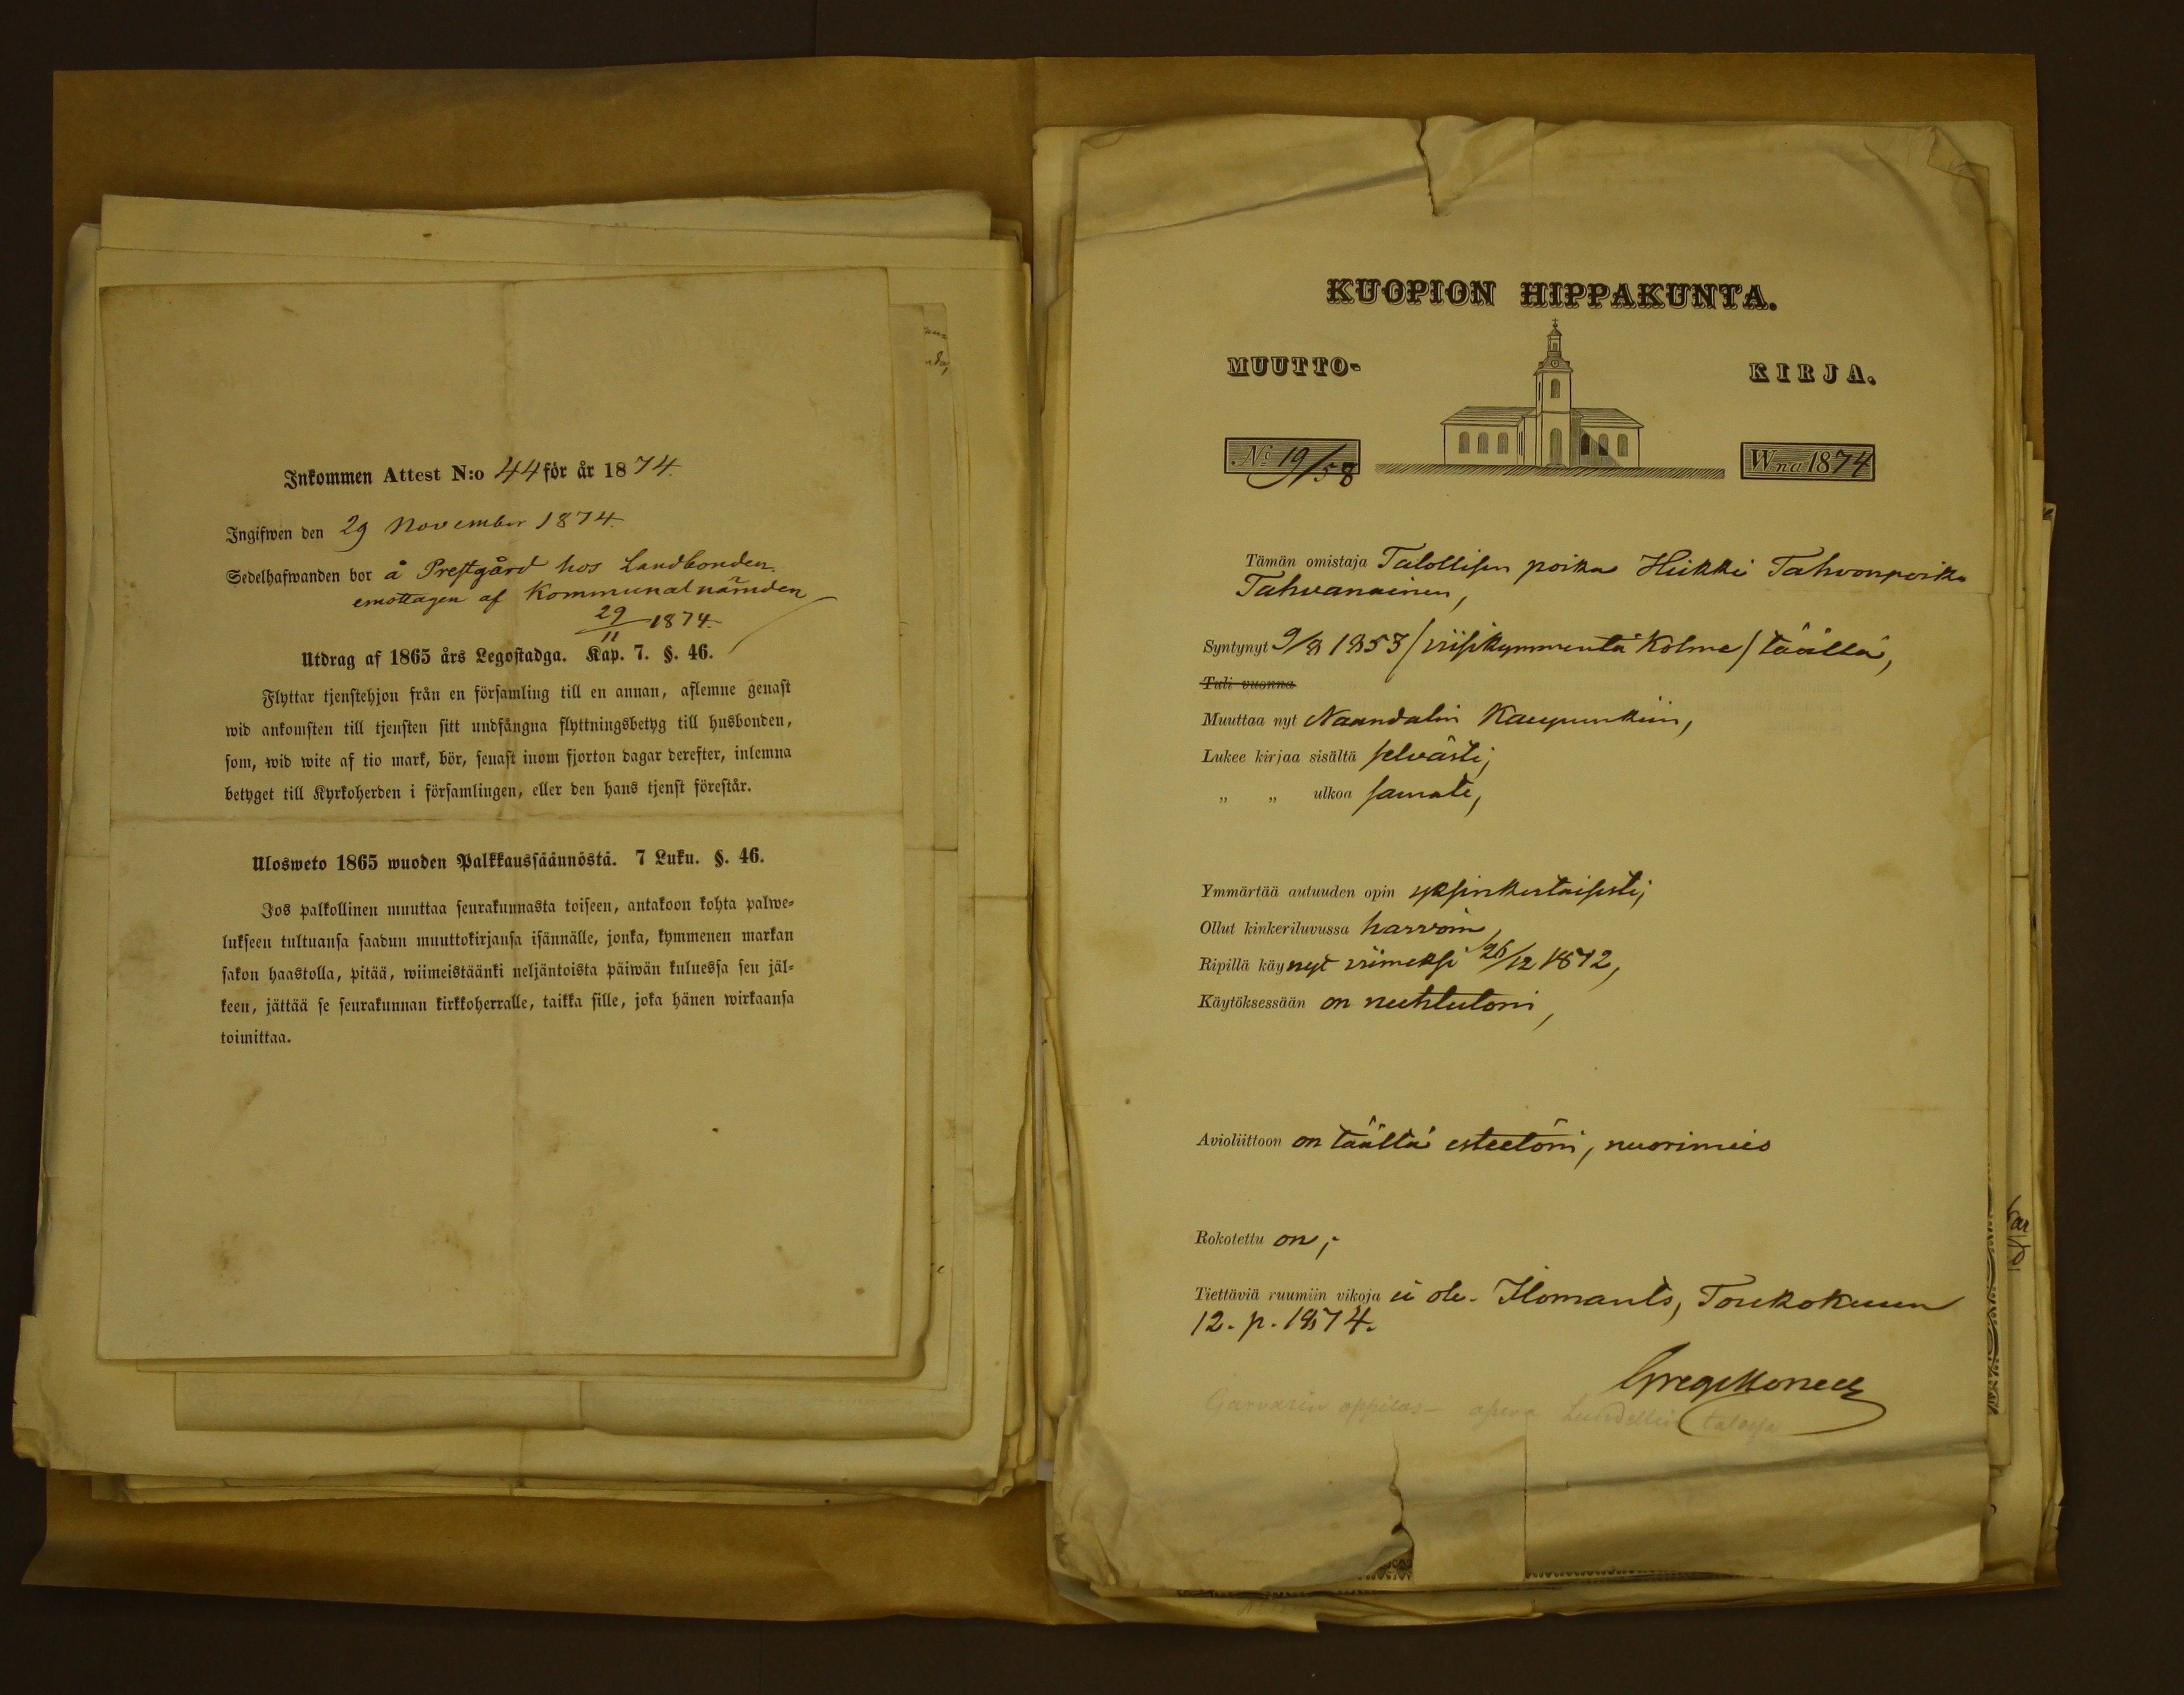 Inkommen Attest N:o 44 för år 1874.
Ingifwen den 29 November 1874.
Sedelhafwanden bor å Prestgård hos Landbonden.
emottagen af Kommunalnämden
29/11 1874.
Utdrag af 1865 års Legostadga. Kap. 7. §. 46.
Flyttar tjenstehjon från en församling till en annan, aflemne genast
wid ankomsten till tjensten sitt undfångna flyttningsbetyg till husbonden,
som, wid wite af tio mark, bör, senast inom fjorton dagar derefter, inlemna
betyget till Kyrkoherden i församlingen, eller den hans tjenst förestår.
Ulosweto 1865 wuoden Palkkaussäännöstä. 7 Luku. §. 46.
Jos palkollinen muuttaa seurakunnasta toiseen, antakoon kohta palwe-
lukseen tultuansa saadun muuttokirjansa isännälle, jonka, kymmenen markan
sakon haastolla, pitää, wiimeistäänki neljäntoista päiwän kuluessa sen jäl-
keen, jättää se seurakunnan kirkkoherralle, taikka sille, joka hänen wirkaansa
toimittaa.
KUOPION HIPPAKUNTA.
MUUTTO- KIRJA.
No 19/58 Wna 1874
Tämän omistaja Talollisen poika Heikki Tahvonpoika
Tahvanainen,
Syntynyt 9/8 1853 / viisikymmentä Kolme / täällä,
Tuli vuonna
Muuttaa nyt Naandalin Kaupunkiin,
Lukee kirjaa sisältä selvästi;
" " ulkoa samate,
Ymmärtää autuuden opin yksinkertaisesti;
Ollut kinkeriluvussa harvoin,
Ripillä käynyt viimeksi 26/12 1872,
Käytöksessään on nuhteetoni,
Avioliittoon on täältä esteetöni, nuorimies
Rokotettu on,-
Tiettäviä ruumiin vikoja ei ole. Ilomants, Toukokuun
12. p. 1874.
Garvarin oppilas - talossa